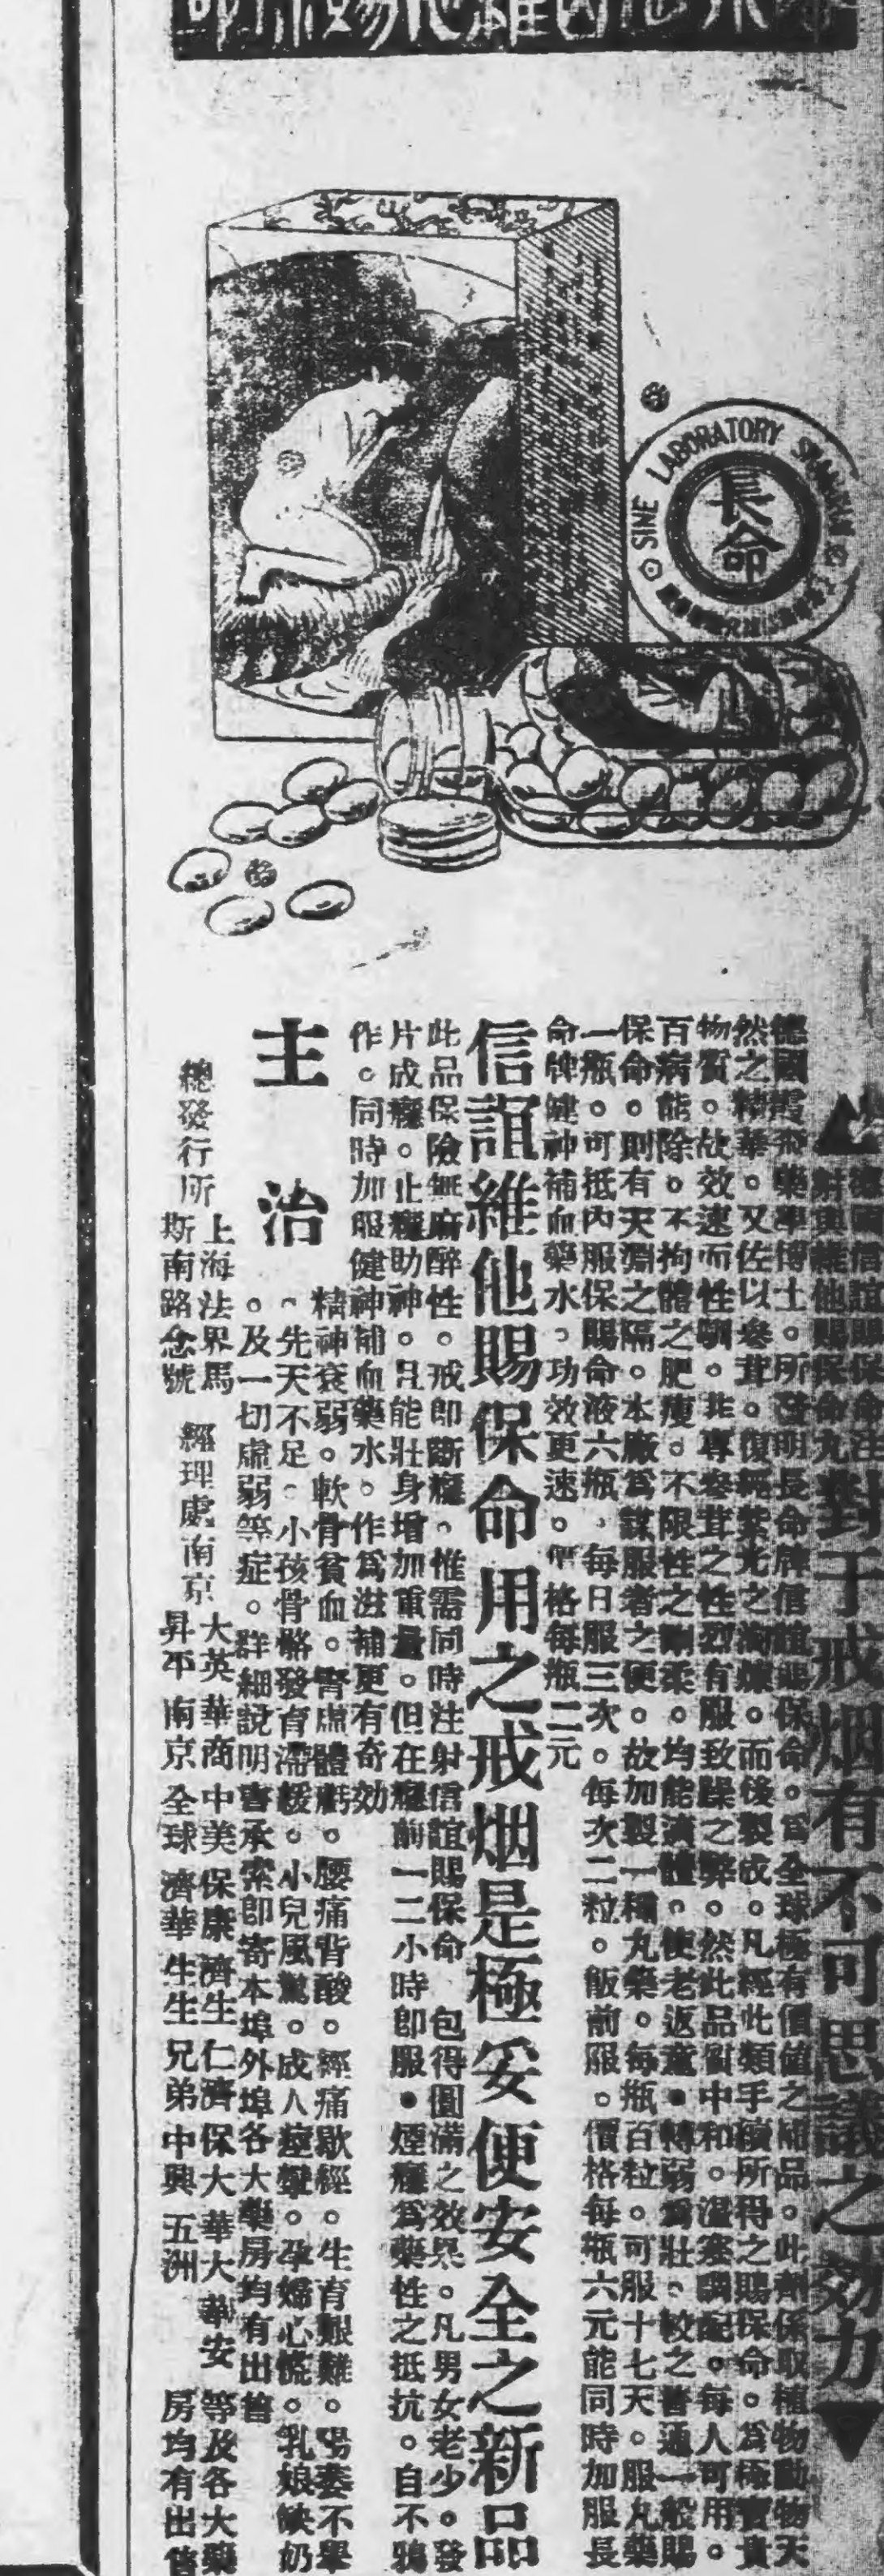 SINE LABORATORY SHANGHAI
長命
德國信誼賜保命注
射與維他賜保命丸
對于戒烟有不可思議之効力
德國霞飛藥學博士。所發明長命牌信誼賜保命。為全球極有價值之補品。此劑係取植物動物天
然之精華。又佐以參茸。復經紫光之製煉。而後製成。凡經此類手續所得之賜保命。為極寶貴
物質。故效速而性馴。非專參茸之性烈有服致躁之弊。然此品劑中和。溫塞調配。每人可用。
百病能除。不拘體之肥瘦。不限性之剛柔。均能適體。使老返童。轉弱為壯。較之普通一般賜
保命。則有天淵之隔。本廠為謀服者之便。故加製一種丸藥。每瓶百粒。可服十七天。服丸藥
一瓶。可抵內服保賜命液六瓶。每日服三次。每次二粒。飯前服。價格每瓶六元能同時加服長
命牌健神補血藥水。功效更速。價格每瓶二元
信誼維他賜保命用之戒烟是極妥便安全之新品
此品保險無麻醉性。戒卽斷癮。惟需同時注射信誼賜保命 包得圓滿之效果。凡男女老少。發
片成癮。止癮助神。且能壯身增加重量。但在癮前一二小時卽服。煙癮為藥性之抵抗。自不
作。同時加服健神補血藥水。作為滋補更有奇効
主治
精神衰弱。軟骨貧血。腎虛體虧。腰痛背酸。經痛歇經。生育艱難。陽委不舉
。先天不足。小孩骨骼發育濡緩。小兒風驚。成人痙攣。孕婦心慌。乳娘缺奶
。及一切虛弱等症。群細說明書承索卽寄本埠外埠各大藥房均有出售
總發行所
上海法界馬
斯南路念號
經理處南京
大英華商中美保康濟生仁濟保大華大 安等及各大藥
昇平南京全球濟華生生兄弟中興五洲 房均有出售